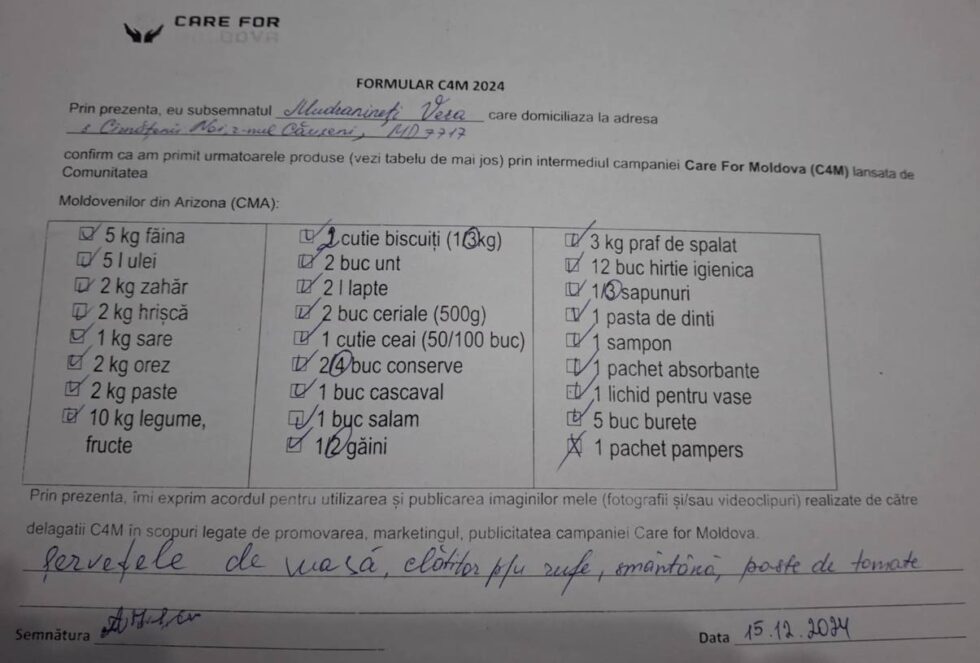 CARE FOR
MOLDOVA
FORMULAR C4M 2024
Prin prezenta, eu subsemnatul Vera care domiciliaza la adresa
s. Noi, r-nul Căușeni, MD 7717
confirm ca am primit urmatoarele produse (vezi tabelu de mai jos) prin intermediul campaniei Care For Moldova (C4M) lansata de
Comunitatea
Moldovenilor din Arizona (CMA):
5 kg făina
5 l ulei
2 kg zahăr
2 kg hrișcă
1 kg sare
2 kg orez
2 kg paste
10 kg legume,
fructe
2 cutie biscuiți (1/3kg)
2 buc unt
2 l lapte
2 buc ceriale (500g)
1 cutie ceai (50/100 buc)
2/4 buc conserve
1 buc cascaval
1 buc salam
1/2 găini
3 kg praf de spalat
12 buc hirtie igienica
1/3 sapunuri
1 pasta de dinti
1 sampon
1 pachet absorbante
1 lichid pentru vase
5 buc burete
1 pachet pampers
Prin prezenta, îmi exprim acordul pentru utilizarea și publicarea imaginilor mele (fotografii și/sau videoclipuri) realizate de către
delagatii C4M în scopuri legate de promovarea, marketingul, publicitatea campaniei Care for Moldova.
șervețele de masă, clătitor p/u rufe, smântână, paste de tomate
Semnătura
Data 15.12.2024